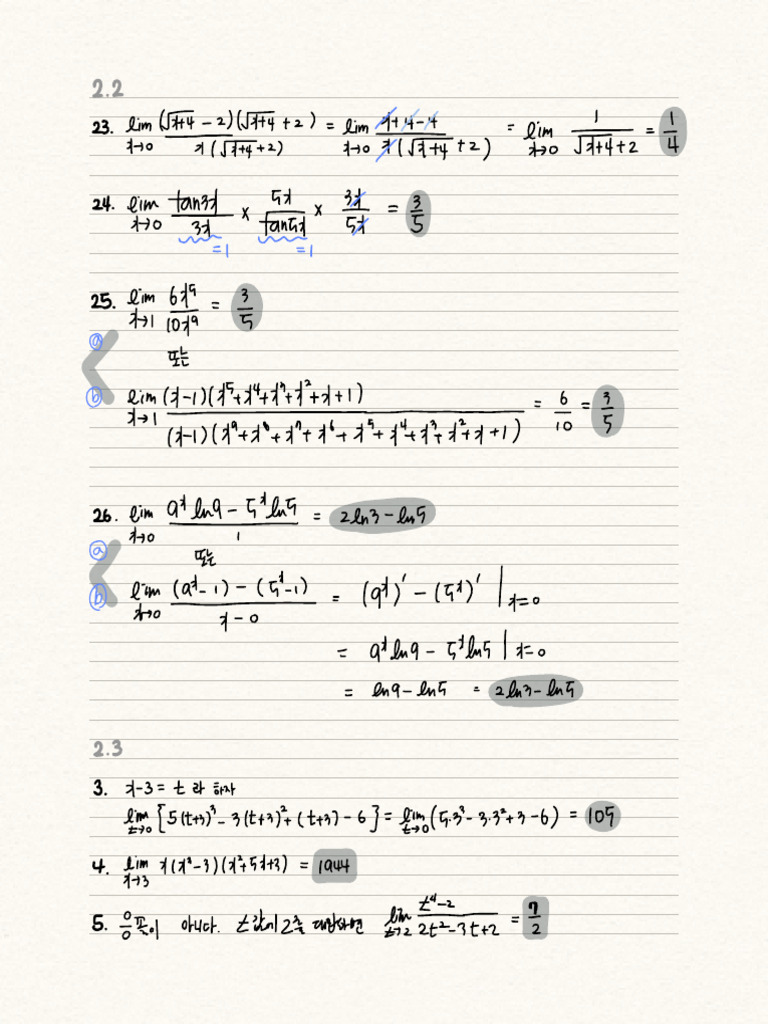 2.2
23. lim x→0 (√x+4 - 2)(√x+4 + 2) / x(√x+4 + 2) = lim x→0 x+4-4 / x(√x+4 + 2) = lim x→0 1 / √x+4 + 2 = 1/4
24. lim x→0 tan3x/3x × 5x/tan5x × 3x/5x = 3/5
=1 =1
25. lim x→1 6x⁵/10x⁹ = 3/5
ⓐ
또는
ⓑ lim x→1 (x-1)(x⁵+x⁴+x³+x²+x+1) / (x-1)(x⁹+x⁸+x⁷+x⁶+x⁵+x⁴+x³+x²+x+1) = 6/10 = 3/5
26. lim x→0 9ˣln9 - 5ˣln5 / 1 = 2ln3 - ln5
ⓐ
또는
ⓑ lim x→0 (9ˣ-1) - (5ˣ-1) / x-0 = (9ˣ)' - (5ˣ)' | x=0
= 9ˣln9 - 5ˣln5 | x=0
= ln9 - ln5 = 2ln3 - ln5
2.3
3. x-3 = t 라 하자
lim t→0 [5(t+3)³ - 3(t+3)² + (t+3) - 6} = lim t→0 (5·3³ - 3·3² + 3 - 6) = 105
4. lim x→3 x(x³-3)(x²+5x+3) = 1944
5. 0/0 꼴이 아니다. t값에 2를 대입하면 lim t→2 t⁴-2 / 2t²-3t+2 = 7/2